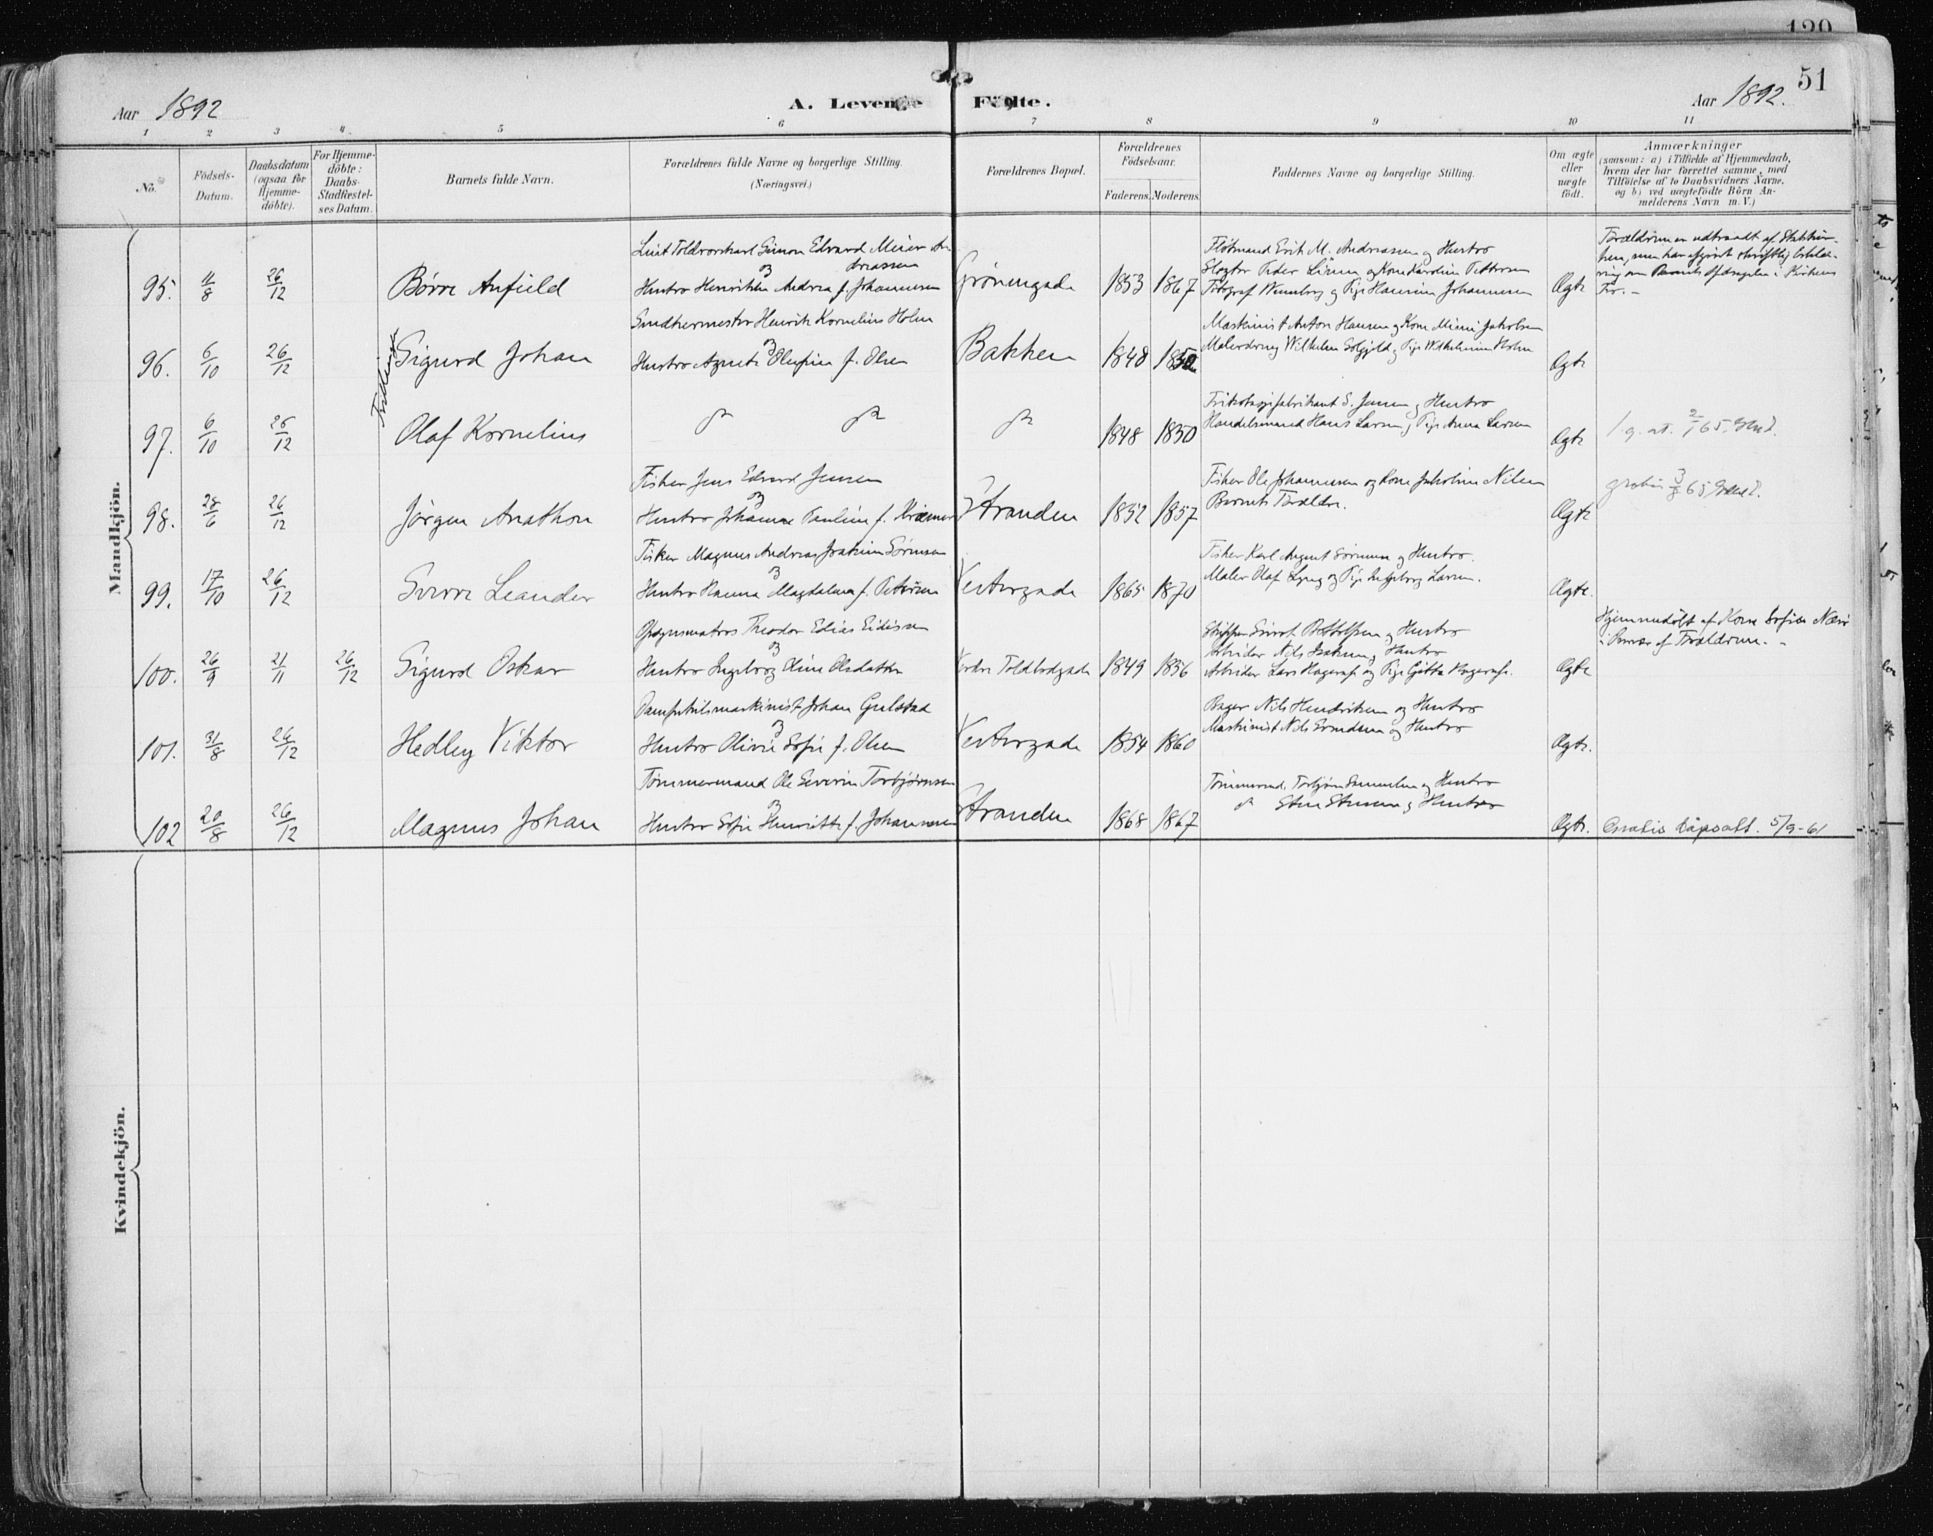 139
51
Aar 1892
A. Levende Födte.
Aar 1892.
1 2 3 4. 5 6 7 8 9 10 11
No.
Födsels-
Datum.
Daabsdatum
(ogsaa for
Hjemme-
döbte).
For Hjemme-
döbte:
Daabs-
Stadfæstel-
ses Datum.
Barnets fulde Navn.
Forældrenes fulde Navne og borgerlige Stilling.
(Næringsvei.)
Forældrenes Bopæl.
Forældrenes
Födselsaar.
Faderens. Moderens.
Faddernes Navne og borgerlige Stilling.
Om ægte
eller
uægte
födt.
Anmærkninger
(saasom: a) i Tilfælde af Hjemmedaab,
hvem der har forrettet samme, med
Tilföielse af to Daabsvidners Navne,
og b) ved uægtefödte Börn An-
melderens Navn m. V.)
Mandkjön.
95. 11/8 26/12 Börre Anfield
Toldvorkarl Simon Edvard Meier An-
dreassen
og
Hustro Henrikke Andrea f. Johannesen
Grönnegade 1853 1867
Flötmand Erik M. Andreassen og Hustro
Slagter Peder og Kone Karoline Pettersen
Fotograf og Pige Johannesen
Ægte
Forældrene udtraadt af Statskir-
ken, men har afgivet skriftlig Erklæ-
ring om Barnets i Kirkens
Tro. -
96. 6/10 26/12 Tvillinger Sigurd Johan
Smedkermester Henrik Kornelius Holm
og
Hustro Agnete Olufine f. Olsen
Bakken 1848 1850
Maskinist Anton Hansen og Kone Mimi Jakobsen
Malerdreng Wilhelm Solfjeld og Pige Wilhelmine Holm
Ægte
97. 6/10 26/12 Olaf Kornelius
1848 1850
Trikotagefabrikant S. Jensen og Hustro
Handelsmand Hans Larsen, Pige Anna Larsen
Ægte
1 g. at. 2/1 65.
98. 28/6 26/12 Jörgen Anathon
Fisker Jens Edvard Jensen
og
Hustro Johanna Pauline f. Kræmer
Stranden 1852 1857
Fisker Ole Johannessen og Kone Jakobine Nilsen
Barnets Forældre.
Ægte
gratis 3/8 65
99. 17/10 26/12 Sverre Leander
Fisker Magnus Andreas Joakim Sörensen
og
Hustro Hanna Magdalena f. Petersen
Vestergade 1865 1870
Fisker Karl August Sörensen og Hustro.
Maler Olaf Lyng og Pige Ingeborg Larsen.
Ægte.
100. 26/9 21/11 26/12 Sigurd Oskar
Opsynsmatros Theodor Edias Eidissen
og
Hustro Ingeborg Oline Olsdatter
Nordre Toldbodgade 1849 1856
Skipper Sivert Bottolfsen og Hustro
Arbeider Nils Isaksen og Hustro
Arbeider Lars Hagerup og Pige Gjetta Hagerup.
Ægte
Hjemmedöbt af Kone Sofie Næss
i Nærvær af Forældrene. -
101. 31/8 26/12 Hedley Viktor
Dampskibsmaskinist Johan Gulstad
og
Hustro Olivie Sofie f. Olsen
Vestergade 1854 1860
Bager Nils Hendriksen og Hustro
Maskinist Nils Svendsen og Hustro
Ægte.
102 20/8 26/12 Magnus Johan
Tömmermand Ole Severin Torbjörnsen
og
Hustro Sofie Henriette f. Johannesen
Stranden 1868 1867
Tömmermd. Torbjörn Samuelsen og Hustro
Ægte.
Gratis dåpsatt. 5/9-61
Kvindekjön.